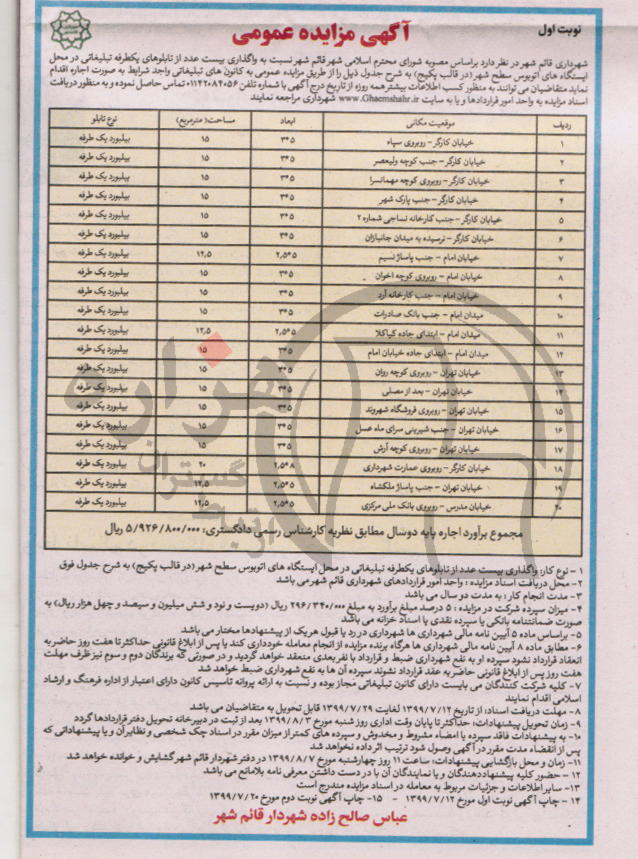 نوبت اول
آگهی مزایده عمومی
شهرداری قائم شهر در نظر دارد براساس مصوبه شورای محترم اسلامی شهر قائم شهر نسبت به واگذاری بیست عدد از تابلوهای یکطرفه تبلیغاتی در محل
ایستگاه های اتوبوس سطح شهر (در قالب پکیج) به شرح جدول ذیل را از طریق مزایده عمومی به کانون های تبلیغاتی واجد شرایط به صورت اجاره اقدام
نماید متقاضیان می توانند به منظور کسب اطلاعات بیشتر همه روزه از تاریخ درج آگهی با شماره تلفن ۰۱۱۴۲۰۸۴۰۵۶ تماس حاصل نموده و به منظور دریافت
اسناد مزایده به واحد امور قراردادها و یا به سایت www.Ghaemshahr.ir شهرداری مراجعه نمایند
ردیف موقعیت مکانی ابعاد مساحت( مترمربع) نوع تابلو
۱ خیابان کارگر – روبروی سپاه ۳*۵ ۱۵ بیلبورد یک طرفه
۲ خیابان کارگر – جنب کوچه ولیعصر ۳*۵ ۱۵ بیلبورد یک طرفه
۳ خیابان کارگر – روبروی کوچه مهمانسرا ۳*۵ ۱۵ بیلبورد یک طرفه
۴ خیابان کارگر – جنب پارک شهر ۳*۵ ۱۵ بیلبورد یک طرفه
۵ خیابان کارگر – جنب کارخانه نساجی شماره ۲ ۳*۵ ۱۵ بیلبورد یک طرفه
۶ خیابان کارگر – نرسیده به میدان جانبازان ۳*۵ ۱۵ بیلبورد یک طرفه
۷ خیابان امام – جنب پاساژ نسیم ۲,۵*۵ ۱۲,۵ بیلبورد یک طرفه
۸ خیابان امام – روبروی کوچه اخوان ۳*۵ ۱۵ بیلبورد یک طرفه
۹ خیابان امام – جنب کارخانه آرد ۳*۵ ۱۵ بیلبورد یک طرفه
۱۰ میدان امام – جنب بانک صادرات ۳*۵ ۱۵ بیلبورد یک طرفه
۱۱ میدان امام – ابتدای جاده کیاکلا ۲,۵*۵ ۱۲,۵ بیلبورد یک طرفه
۱۲ میدان امام – ابتدای جاده خیابان امام ۳*۵ ۱۵ بیلبورد یک طرفه
۱۳ خیابان تهران – روبروی کوچه روان ۳*۵ ۱۵ بیلبورد یک طرفه
۱۴ خیابان تهران – بعد از مصلی ۳*۵ ۱۵ بیلبورد یک طرفه
۱۵ خیابان تهران – روبروی فروشگاه شهروند ۳*۵ ۱۵ بیلبورد یک طرفه
۱۶ خیابان تهران – جنب شیرینی سرای ماه عسل ۳*۵ ۱۵ بیلبورد یک طرفه
۱۷ خیابان تهران – روبروی کوچه آرش ۳*۵ ۱۵ بیلبورد یک طرفه
۱۸ خیابان کارگر – روبروی عمارت شهرداری ۲,۵*۸ ۲۰ بیلبورد یک طرفه
۱۹ خیابان تهران – جنب پاساژ ملکشاه ۲,۵*۵ ۱۲,۵ بیلبورد یک طرفه
۲۰ خیابان مدرس – روبروی بانک ملی مرکزی ۲,۵*۵ ۱۲,۵ بیلبورد یک طرفه
مجموع برآورد اجاره پایه دوسال مطابق نظریه کارشناس رسمی دادگستری: ۵/۹۲۶/۸۰۰/۰۰۰ ریال
۱ – نوع کار: واگذاری بیست عدد از تابلوهای یکطرفه تبلیغاتی در محل ایستگاه های اتوبوس سطح شهر (در قالب پکیج) به شرح جدول فوق
۲- محل دریافت اسناد مزایده : واحد امور قراردادهای شهرداری قائم شهر می باشد
۳ – مدت انجام کار : به مدت دو سال می باشد
۴ – میزان سپرده شرکت در مزایده : ۵ درصد مبلغ برآورد به مبلغ ۲۹۶/۳۴۰/۰۰۰ ریال (دویست و نود و شش میلیون و سیصد و چهل هزار ریال) به
صورت ضمانتنامه بانکی یا سپرده نقدی یا اسناد خزانه می باشد
۵- براساس ماده ۵ آیین نامه مالی شهرداری ها شهرداری در رد یا قبول هر یک از پیشنهادها مختار می باشد
۶- مطابق ماده ۸ آیین نامه مالی شهرداری ها هرگاه برنده مزایده از انجام معامله خودداری کند یا پس از ابلاغ قانونی حداکثر تا هفت روز حاضر به
انعقاد قرارداد نشود سپرده او به نفع شهرداری ضبط و قرارداد با نفر بعدی منعقد خواهد گردید و در صورتی که برندگان دوم و سوم نیز ظرف مهلت
هفت روز پس از ابلاغ قانونی حاضر به عقد قرارداد نشوند سپرده آن ها به نفع شهرداری ضبط خواهد شد
۷- کلیه شرکت کنندگان می بایست دارای کانون تبلیغاتی مجاز بوده و نسبت به ارائه پروانه تاسیس کانون دارای اعتبار از اداره فرهنگ و ارشاد
اسلامی اقدام نمایند
۸- مهلت دریافت اسناد: از تاریخ ۱۳۹۹/۷/۱۲ لغایت ۱۳۹۹/۷/۲۹ قابل تحویل به متقاضیان می باشد
۹- زمان تحویل پیشنهادات: حداکثر تا پایان وقت اداری روز شنبه مورخ ۱۳۹۹/۸/۳ بعد از ثبت در دبیرخانه تحویل دفتر قراردادها گردد
۱۰- به پیشنهادات فاقد سپرده یا امضاء مشروط و مخدوش و سپرده های کمتر از میزان مقرر در اسناد چک شخصی و نظایر آن و یا پیشنهاداتی که
پس از انقضاء مدت مقرر در آگهی وصول شود ترتیب اثر داده نخواهد شد
۱۱- زمان و محل بازگشایی پیشنهادات: ساعت ۱۱ روز چهارشنبه مورخ ۱۳۹۹/۸/۷ در دفتر شهردار قائم شهر گشایش و خوانده خواهد شد
۱۲ – حضور کلیه پیشنهاددهندگان و یا نمایندگان آن با در دست داشتن معرفی نامه بلامانع می باشد
۱۳- سایر اطلاعات و جزئیات مربوط به معامله در اسناد مزایده مندرج است
۱۴ – چاپ آگهی نوبت اول مورخ ۱۳۹۹/۷/۱۲ - ۱۵- چاپ آگهی نوبت دوم مورخ ۱۳۹۹/۷/۲۰
عباس صالح زاده شهردار قائم شهر